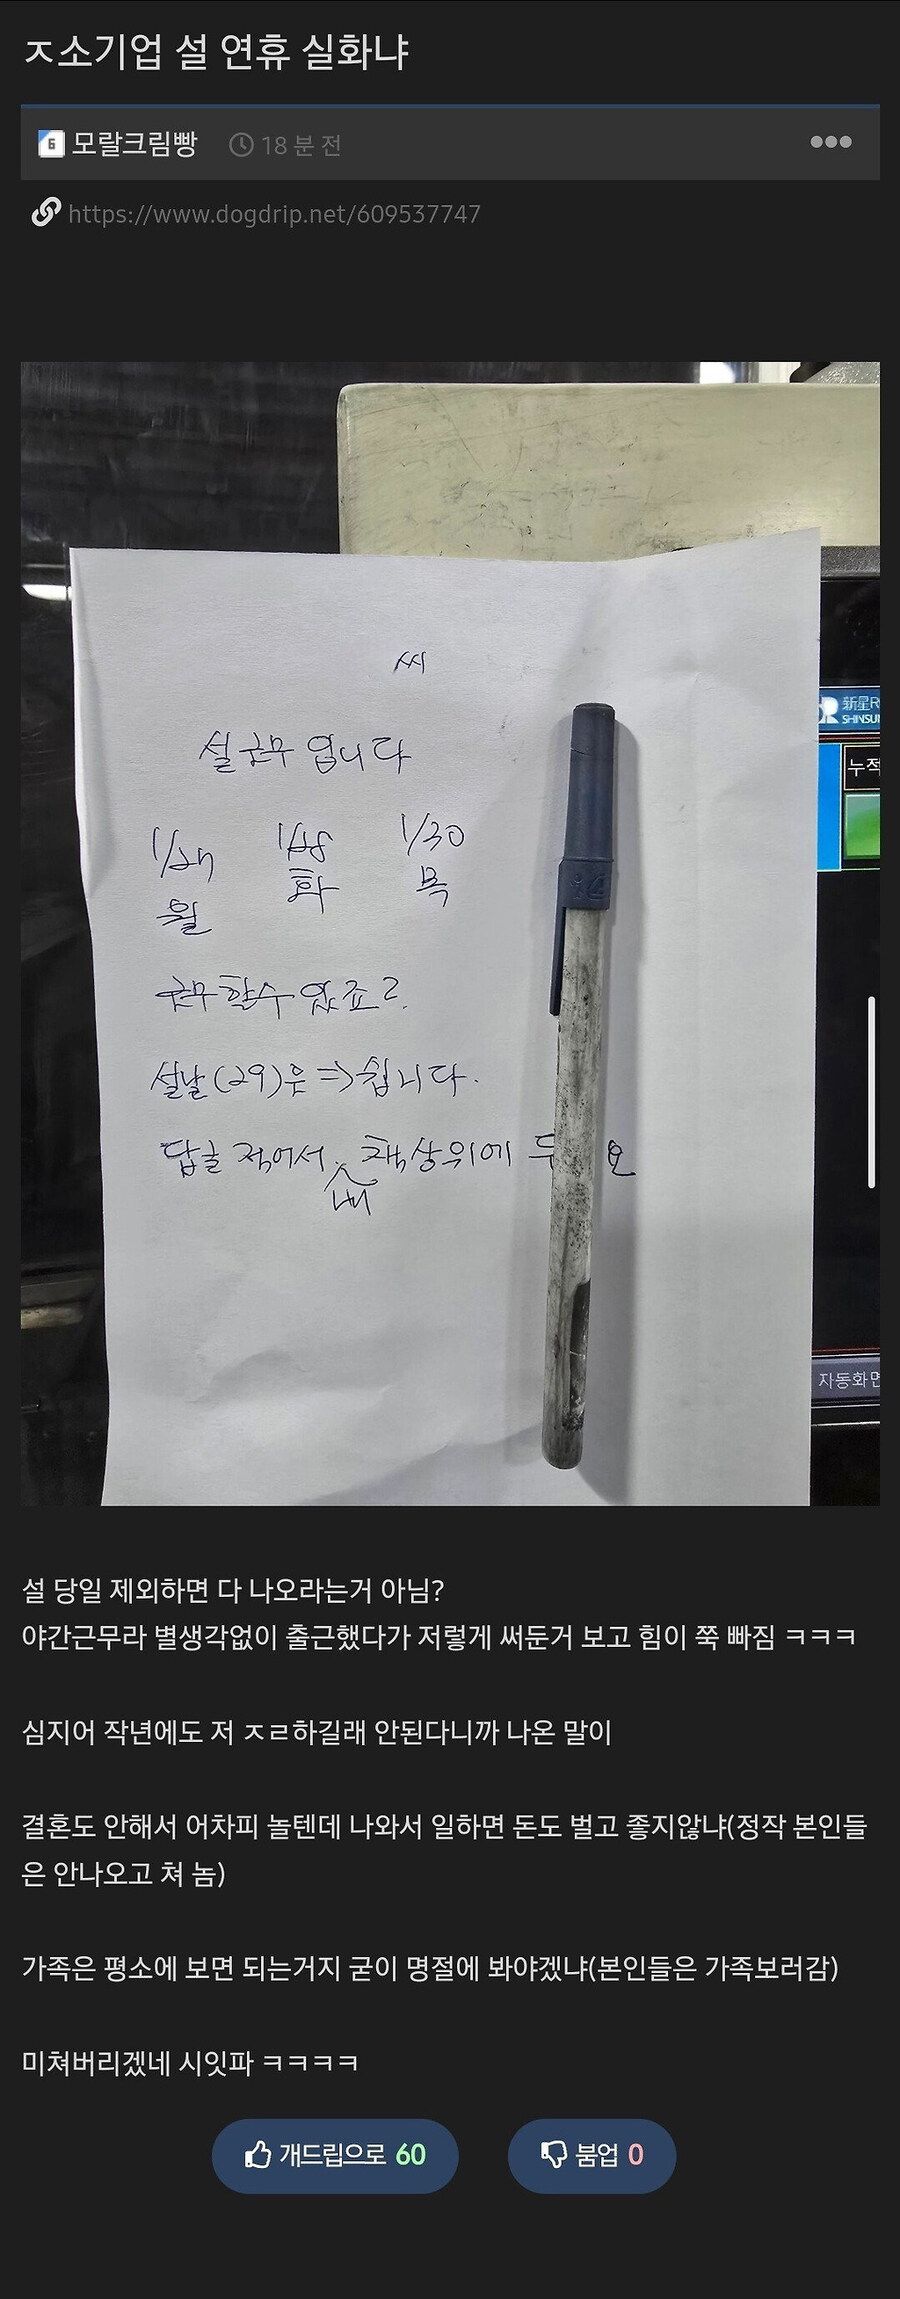 ㅈ소기업 설 연휴 실화냐
6 모랄크림빵 18 분 전
https://www.dogdrip.net/609537747
씨
설 근무 입니다
1/27 1/28 1/30
월 화 목
근무 할수 있죠?
설날(29)은 => 쉽니다.
답글 적어서 책상위에
내
新星
SHINSUN
누적
자동화면
설 당일 제외하면 다 나오라는거 아님?
야간근무라 별생각없이 출근했다가 저렇게 써둔거 보고 힘이 쭉 빠짐 ㅋㅋㅋ
심지어 작년에도 저 ㅈㄹ하길래 안된다니까 나온 말이
결혼도 안해서 어차피 놀텐데 나와서 일하면 돈도 벌고 좋지않냐(정작 본인들
은 안나오고 쳐 놈)
가족은 평소에 보면 되는거지 굳이 명절에 봐야겠냐(본인들은 가족보러감)
미쳐버리겠네 시잇파 ㅋㅋㅋㅋ
개드립으로 60 붐업 0